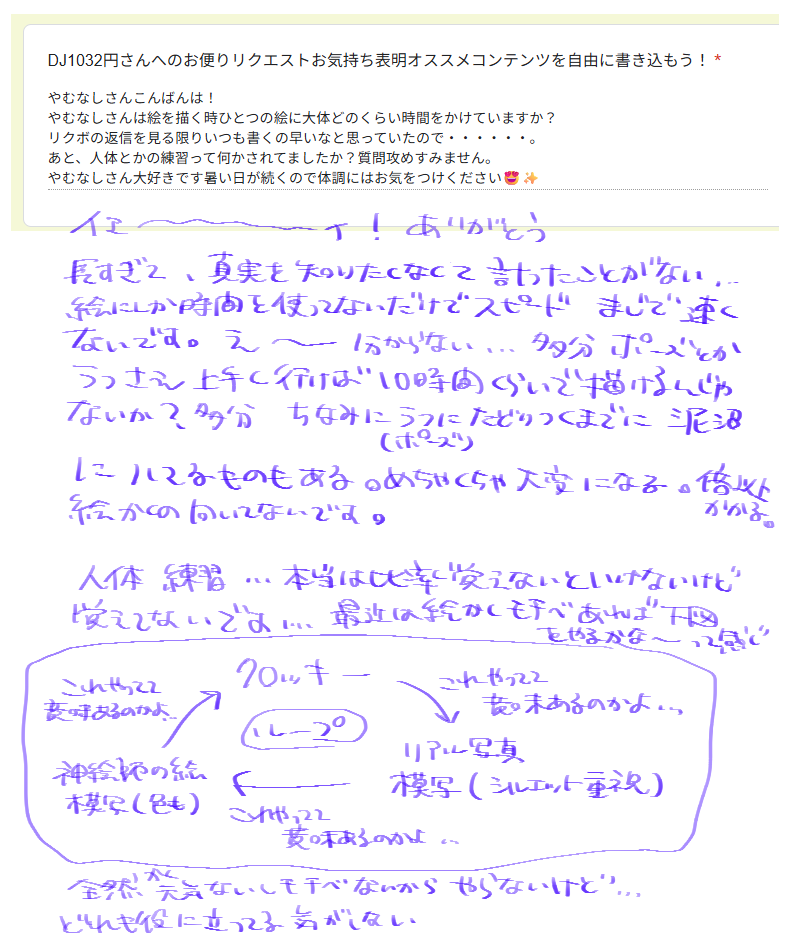 DJ1032円さんへのお便りリクエストお気持ち表明オススメコンテンツを自由に書き込もう！ *
やむなしさんこんばんは！
やむなしさんは絵を描く時ひとつの絵に大体どのくらい時間をかけていますか？
リクボの返信を見る限りいつも書くの早いなと思っていたので・・・・・・。
あと、人体とかの練習って何かされてましたか？質問攻めすみません。
やむなしさん大好きです暑い日が続くので体調にはお気をつけください😍✨
イエ〜〜〜イ！ ありがとう
長すぎて、真実を知りたくなくて言わったことがない...
絵にしか時間を使ってないだけでスピード まじで速く
ないです。え〜 分からない... 多分 ポーズとか
うっさえ上手く行けば10時間くらいで描けるんじゃ
ないか？多分 ちなみにうつにたどりつくまでに 泥沼
(ポーズ)
にハマてるものもある。めちゃくちゃ大変になる。倍以上
かかる。
絵かくの向いてないです。
人体 練習... 本当は比率覚えないといけないけど
覚えてないです... 最近は絵かくモチベあれば下図
をやるかな〜って感じ
クロッキー
これやってて
意味あるのかよ...
リアル写真
模写(シルエット重視)
これやってて
意味あるのかよ...
神絵師の絵
模写(色も)
これやってて
意味あるのかよ...
ループ
全然 元気ないしモチベないからやらないけど...
が
どれも役に立ってる気がしない